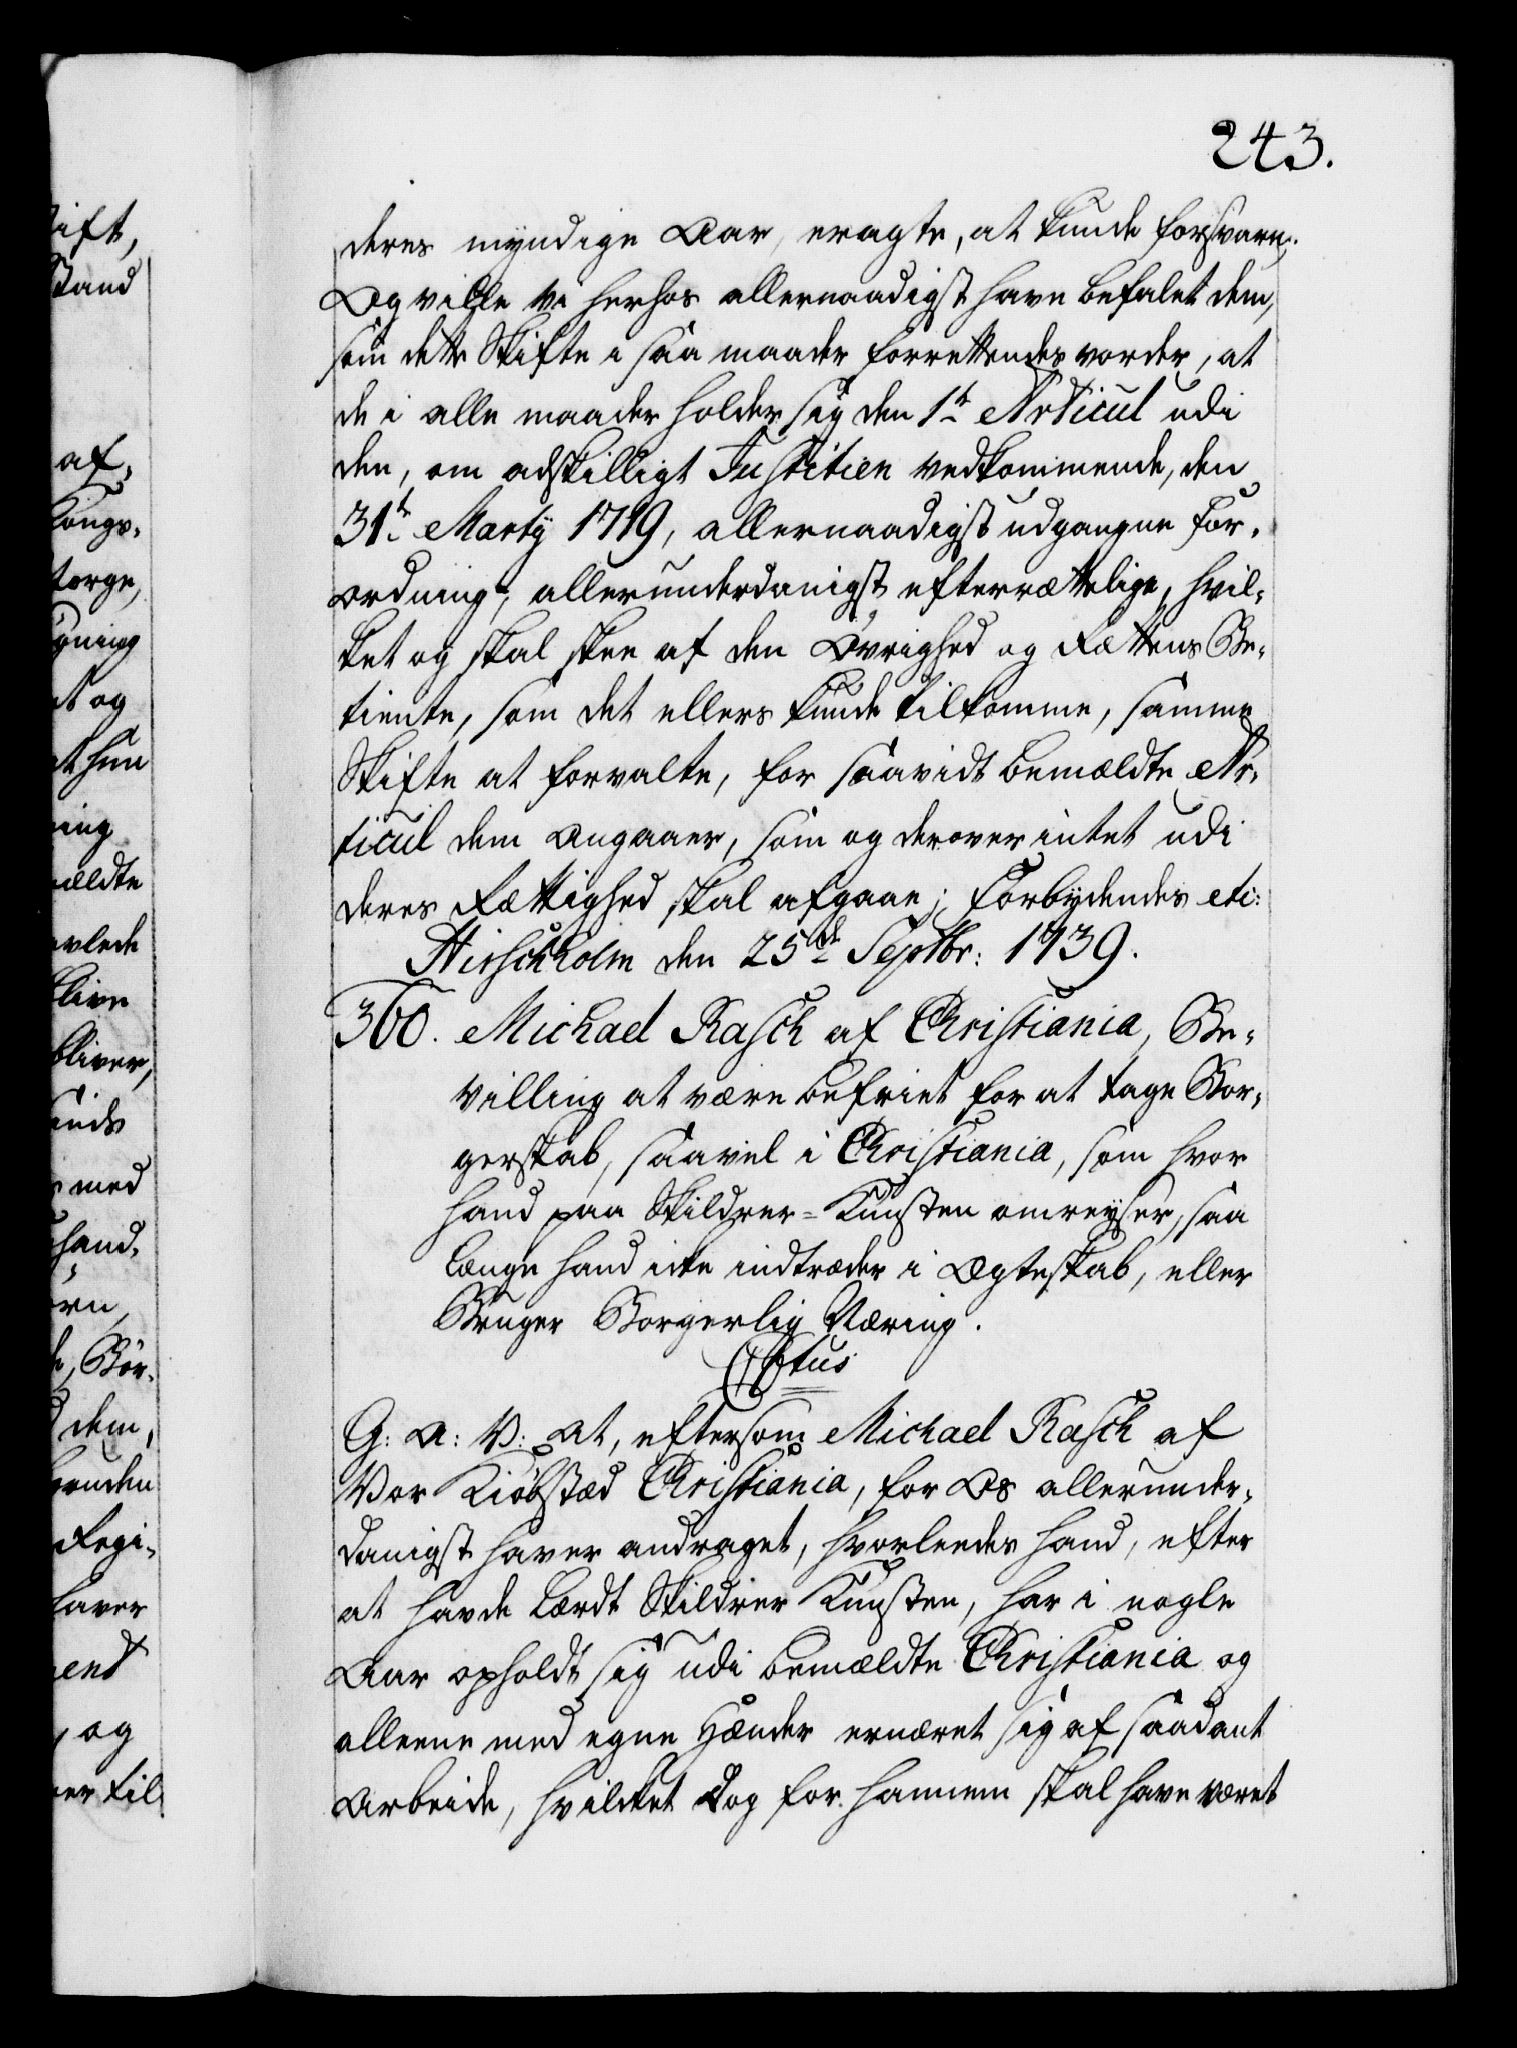 243.
deres myndige Aar, eragte, at kunde forsvare;
Og ville Vi herhos allernaadigst have befalet dem,
som dette Skifte i saa maader forrettendes vorder, at
de i alle maader holder sig den 1te Articul udi
den, om adskilligt Justitien vedkommende, den
31te Martij 1719, allernaadigst udgangne For-
ordning, allerunderdanigst efterrettelige, hvil-
ket og skal skee af den Øvrighed og Rettens Be-
tiente, som det ellers kunde tilkomme, samme
Skifte at forvalte, for saavidt bemældte Ar-
ticul dem angaaer, som og derover intet udi
deres Rettighed skal afgaae; Forbydendes etc:
Hirschholm den 25de Septbr: 1739.
360. Michael Rasch af Christiania, Be-
villing at være befriet for at tage Bor-
gerskab, saavel i Christiania, som hvor
hand paa Skildrer-Kunsten omreyser, saa
længe hand icke indtræder i Ægteskab, eller
Bruger Borgerlig Næring.
C6tus
G: A: V: at, eftersom Michael Rasch af
Vor Kiøbstæd Christiania, for Os allerunder-
danigst haver andraget, hvorleedes hand, efter
at havde lærdt Skildrer Kunsten, har i nogle
Aar opholdt sig udi bemældte Christiania og
alleene med egne Hænder ernæret sig af saadant
Arbeide, hvilcket dog for hannem skal have været
ift,
stand
af-
Kongs-
Norge,
gning
at og
at hun
ning
mældte
avlede
blive
bliver,
unds
med
hand-
ørn,
de, Bør-
dem,
Regi-
haver
ent
og
er til